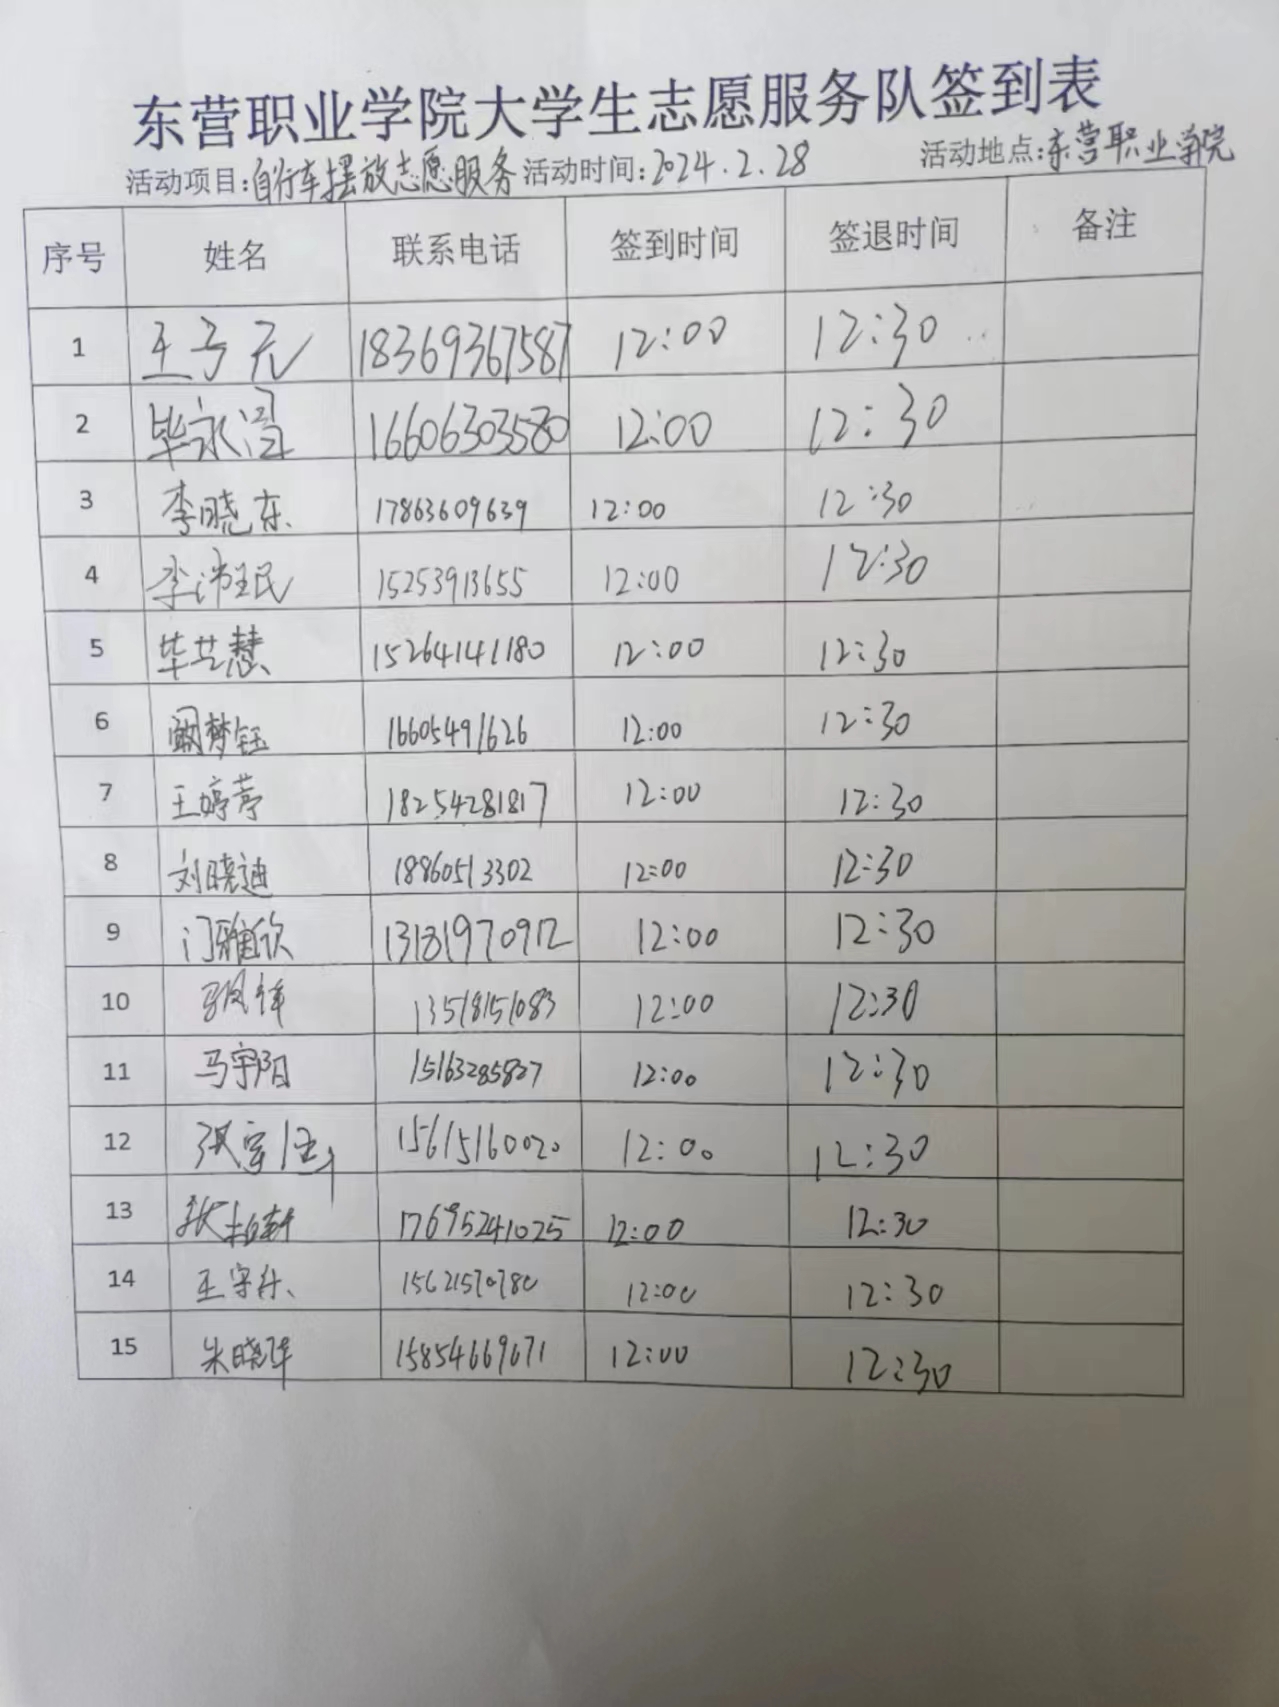 东营职业学院大学生志愿服务队签到表
活动项目:自行车摆放志愿服务 活动时间:2024.2.28 活动地点:东营职业学院
序号 姓名 联系电话 签到时间 签退时间 备注
1 王子元 18369367587 12:00 12:30
2 毕永 16606303580 12:00 12:30
3 李晓东 17863609639 12:00 12:30
4 李沛民 15253913655 12:00 12:30
5 毕艺慧 15264141180 12:00 12:30
6 阚梦钰 16605491626 12:00 12:30
7 王婷葶 18254281817 12:00 12:30
8 刘晓迪 18860513302 12:00 12:30
9 门雅欣 13181970912 12:00 12:30
10 13518151083 12:00 12:30
11 马宇阳 15163285827 12:00 12:30
12 张宇 15615160020 12:00 12:30
13 张柏轩 17695241025 12:00 12:30
14 王宇 15621570780 12:00 12:30
15 朱晓萍 15854669671 12:00 12:30